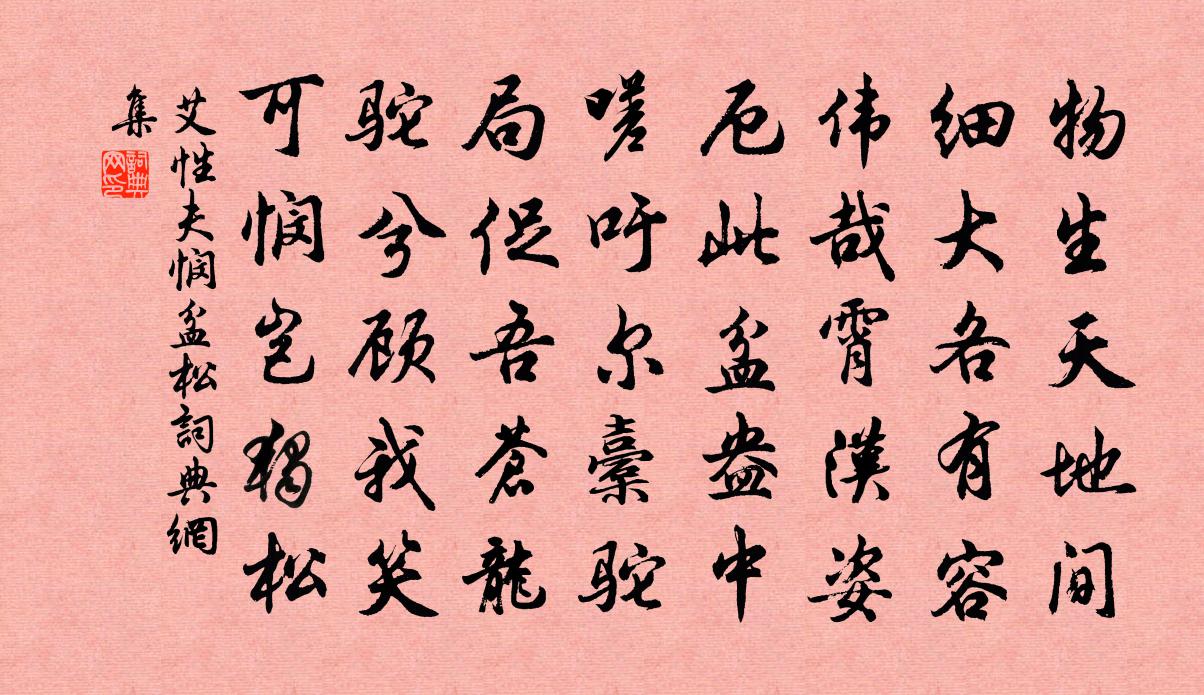 物生天地间
细大各有容
伟哉霄漢姿
厄此盆盎中
嗟吁尔橐驼
局促吾蒼龍
驼兮顾我笑
可悯岂獨松
艾性夫悯盆松詞典網
集
詞典網印